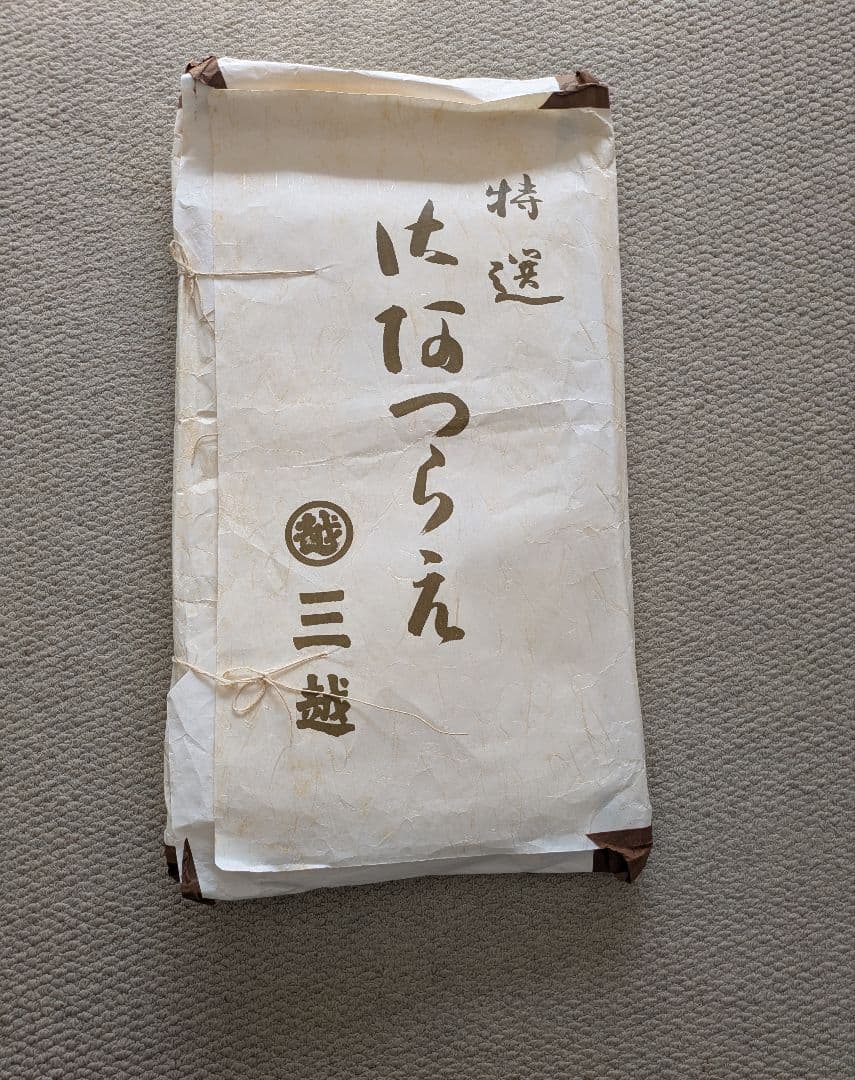 特選
おあつらえ
越
三越